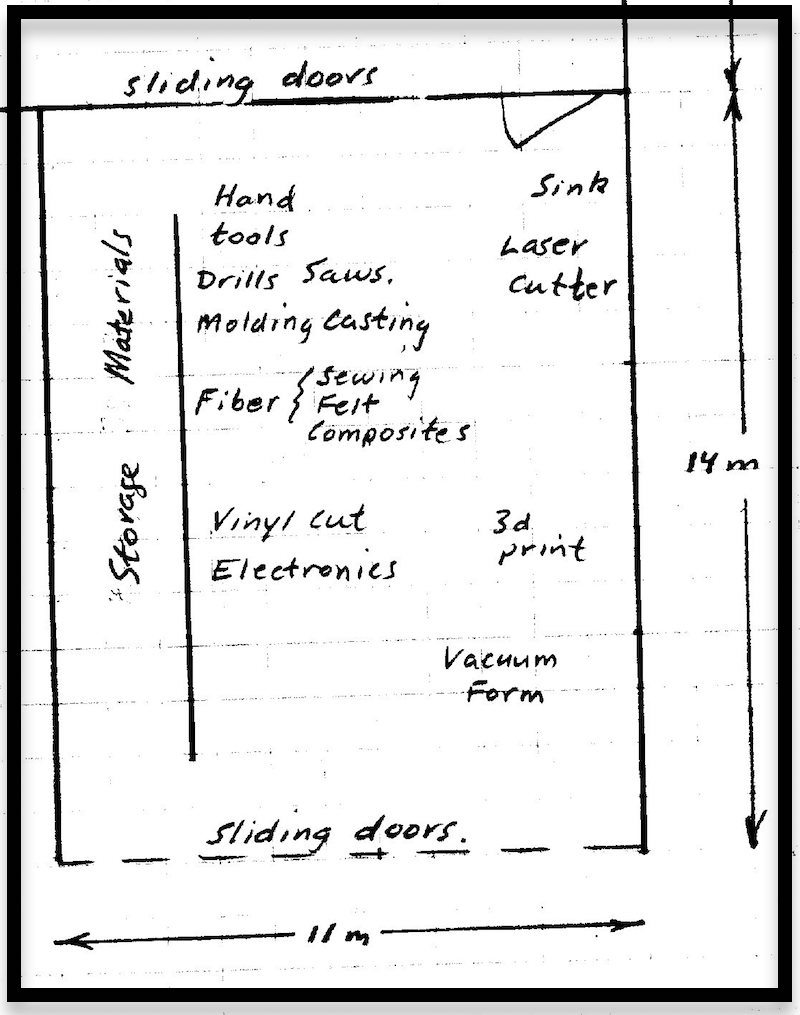 sliding doors
Hand
tools
Sink
Drills Saws.
Laser
Cutter
Molding Casting
Fiber { Sewing
Felt
Composites
Materials
Storage
14 m
Vinyl Cut
3d
print
Electronics
Vacuum
Form
Sliding doors.
11 m